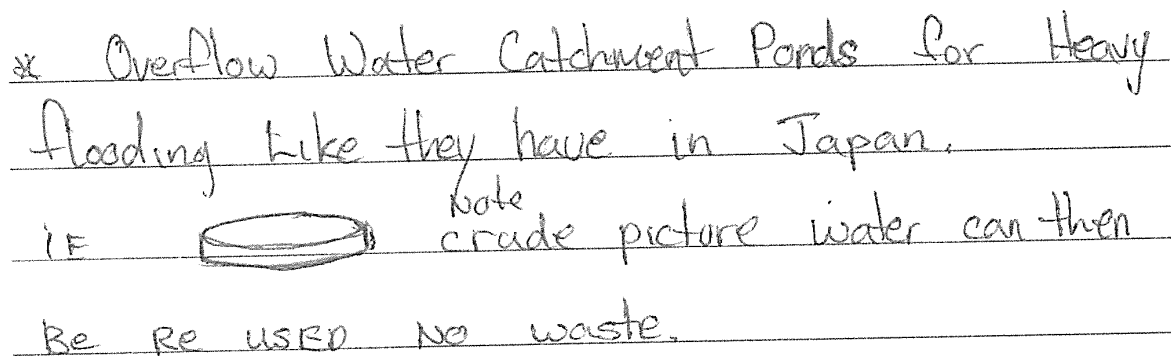 * Overflow Water Catchment Ponds for Heavy
flooding Like they have in Japan.
Note
IF crude picture water can then
Be Re USED NO waste.